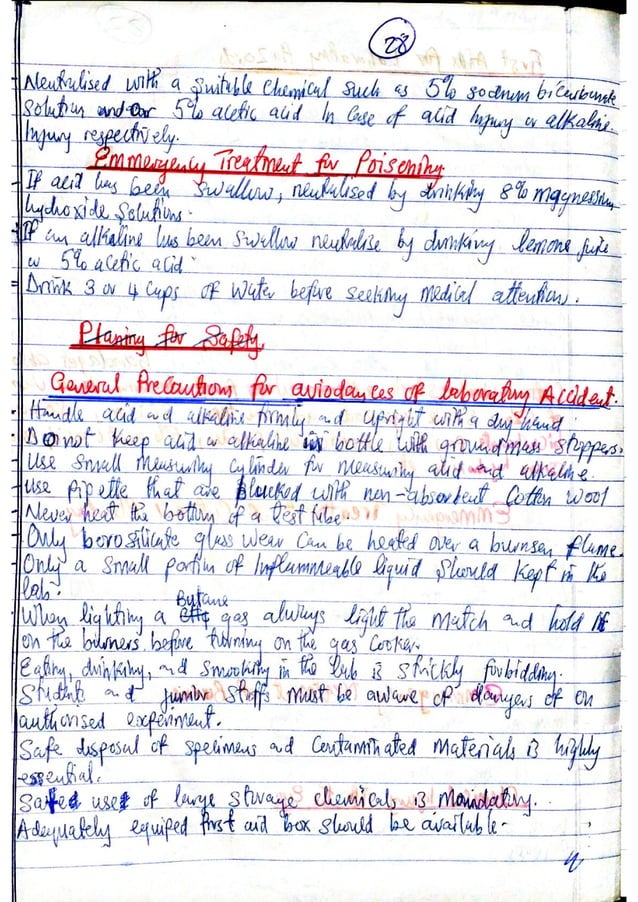 28
Neutralised with a suitable chemical such as 5% sodium bicarbonate
solution and or 5% acetic acid in case of acid injury or alkaline
Injury respectively.
Emmergency Treatment for Poisening
- If acid has been swallow, neutralised by drinking 8% magnessium
hydroxide solutions.
- If an alkaline has been swallow neutralise by drinking lemone juice
or 5% acetic acid.
- Drink 3 or 4 cups of water before seeking medical attention.
Planing for Safety
General Precautions for aviodances of laboratory Accident.
- Handle acid and alkaline firmly and upright with a dry hand
- Do not keep acid or alkaline in bottle with ground stoppers.
- Use small measuring cylinder for measuring acid and alkaline.
- Use pipette that are plucked with non-absorbent cotten wool
- Never heat the bottom of a test tube.
- Only borosilicate glass wear can be heated over a bunsen flame.
- Only a small portion of inflammeable liquid should kept in the
lab.
When lighting a Butane gas always light the match and hold it
on the burners before turning on the gas cooker.
Eating, drinking, and smooking in the lab is strickly forbidding.
Students and junior staffs must be aware of dangers of on
authorised experiment.
Safe disposal of specimens and contaminated materials is highly
essential.
Safe use of large storage chemicals is mandatory.
Adequately equiped first aid box should be available.